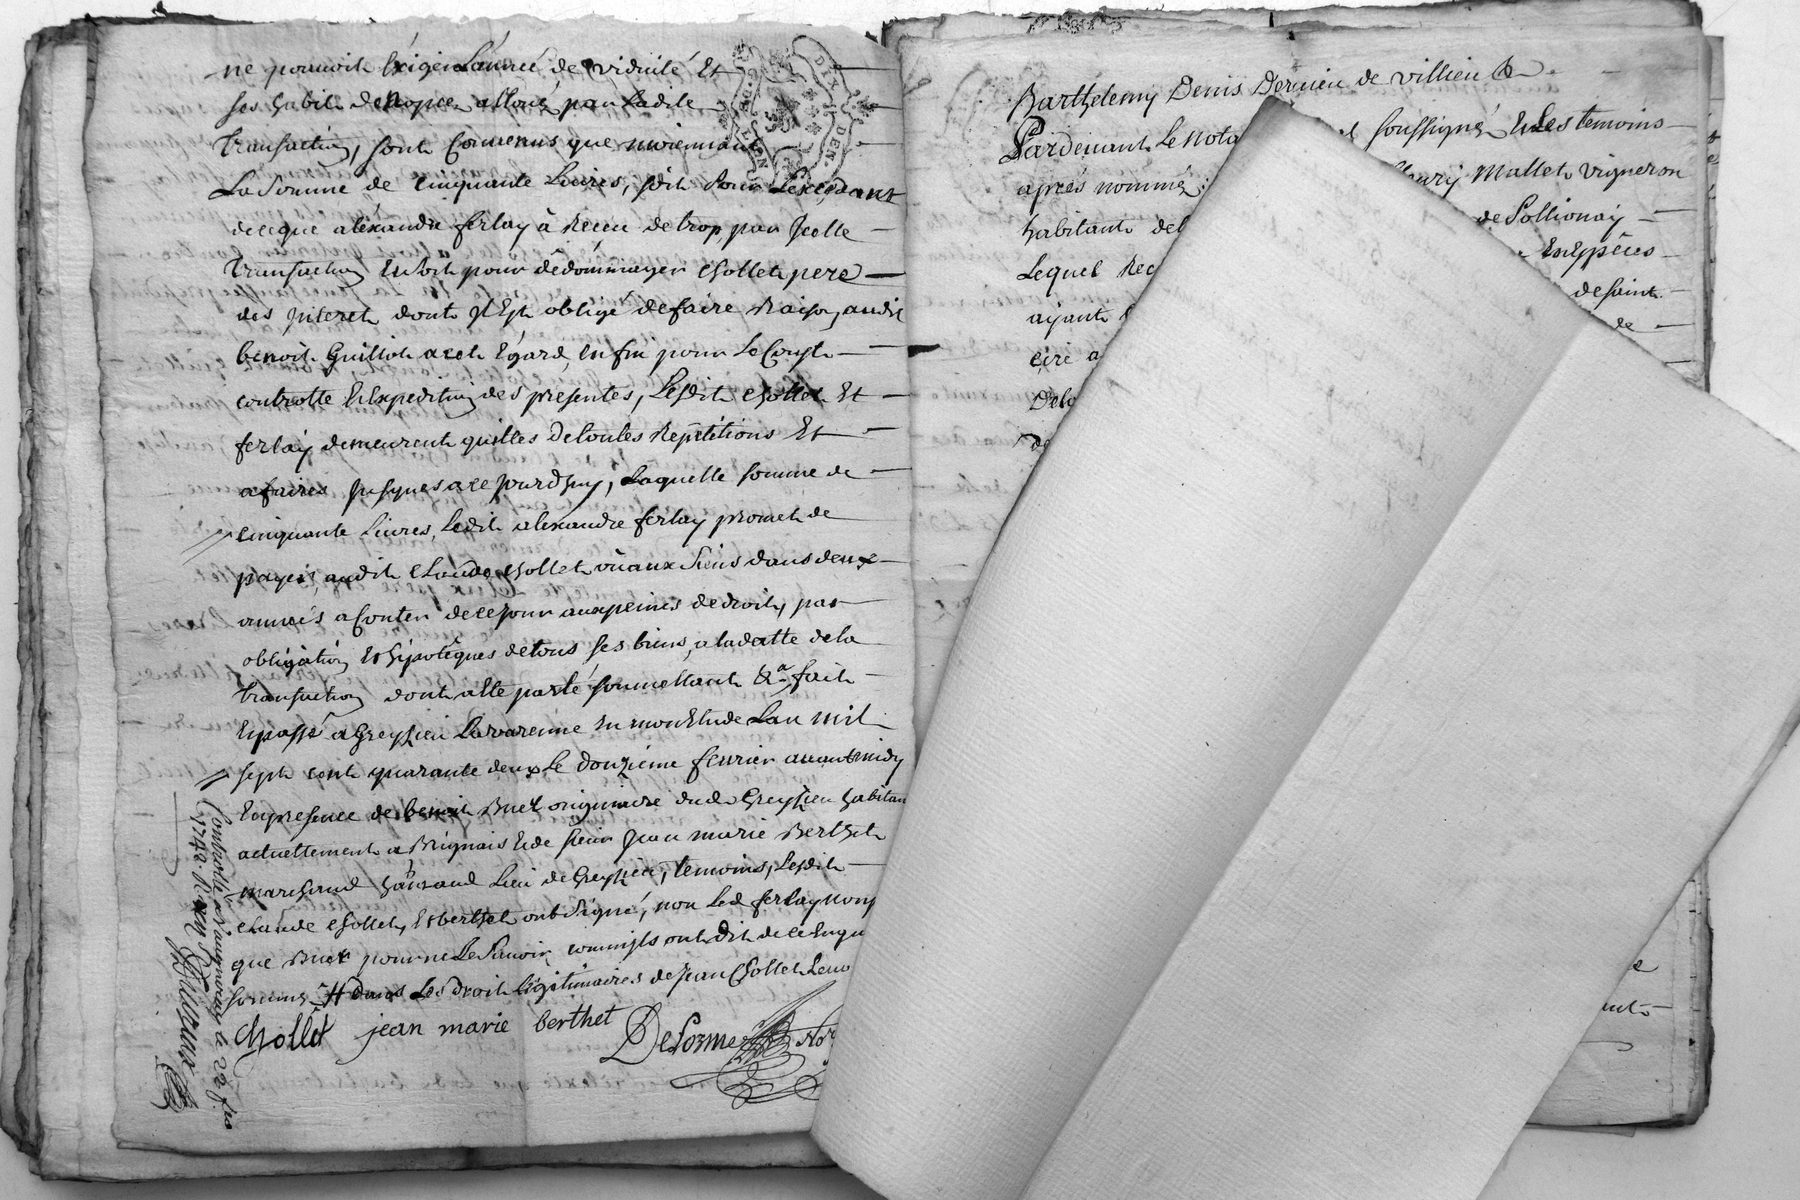 ne pouvoit Exiger L'année de viduité Et
ses habits de Nopces alloué par Ladite
transaction, sont Convenus que moiennant
La Somme de Cinquante Livres, soit pour Lexcedant
de ce que alexandre ferlay à Receu de trop par Jcelle
transaction Et soit pour dédommager Chollet pere
des Jnterets dont Jl Est obligé de faire Raison audit
benoit Guillot a cet Egard, Enfin pour Le Coust
controlle Et Expedition des presentes, Lesdits Chollet Et
ferlay demeurent quittes de toutes Repetitions Et
afaires Jusques a ce Jourdhuy, Laquelle somme de
Cinquante Livres, Ledit alexandre ferlay promet de
payer audit Claude Chollet où aux Siens dans deux
années a Conter de ce Jour aux peines de droit, par
obligation Et hipotêques de tous ses biens, a la datte de la
transaction dont a été parlé soumettant &a. fait
Et passé a Greyzieu Lavarenne En mon Etude Lan mil
sept cent quarante deux Le douzième fevrier avant midy
En presence de benoit Buet originaire dud. Greyzieu habitan
actuellement a Brignais Et de sieur Jean marie Berthet
marchand aud. Lieu de Greyzieu, temoins, Lesdits
Claude Chollet, Et berthet ont Signé, non Led. ferlay non
que Buet pour ne Le Sçavoir, comme ils ont dit de ce Enqu
sommés # dans Les droits Legitimaires de Jean Chollet
Chollet jean marie berthet Delorme Nore
Controllé a Vaugneray le 22 fev
1742. R.
DIX DEN.
LYON
Barthelemy Denis Dernieu de villieu &
Pardevant Le Nota
soussigné Et Les temoins
après nommés
fleury Mallet vigneron
habitant de
de Pollionay
Lequel Rec
En Espêces
ayant
de saint
de